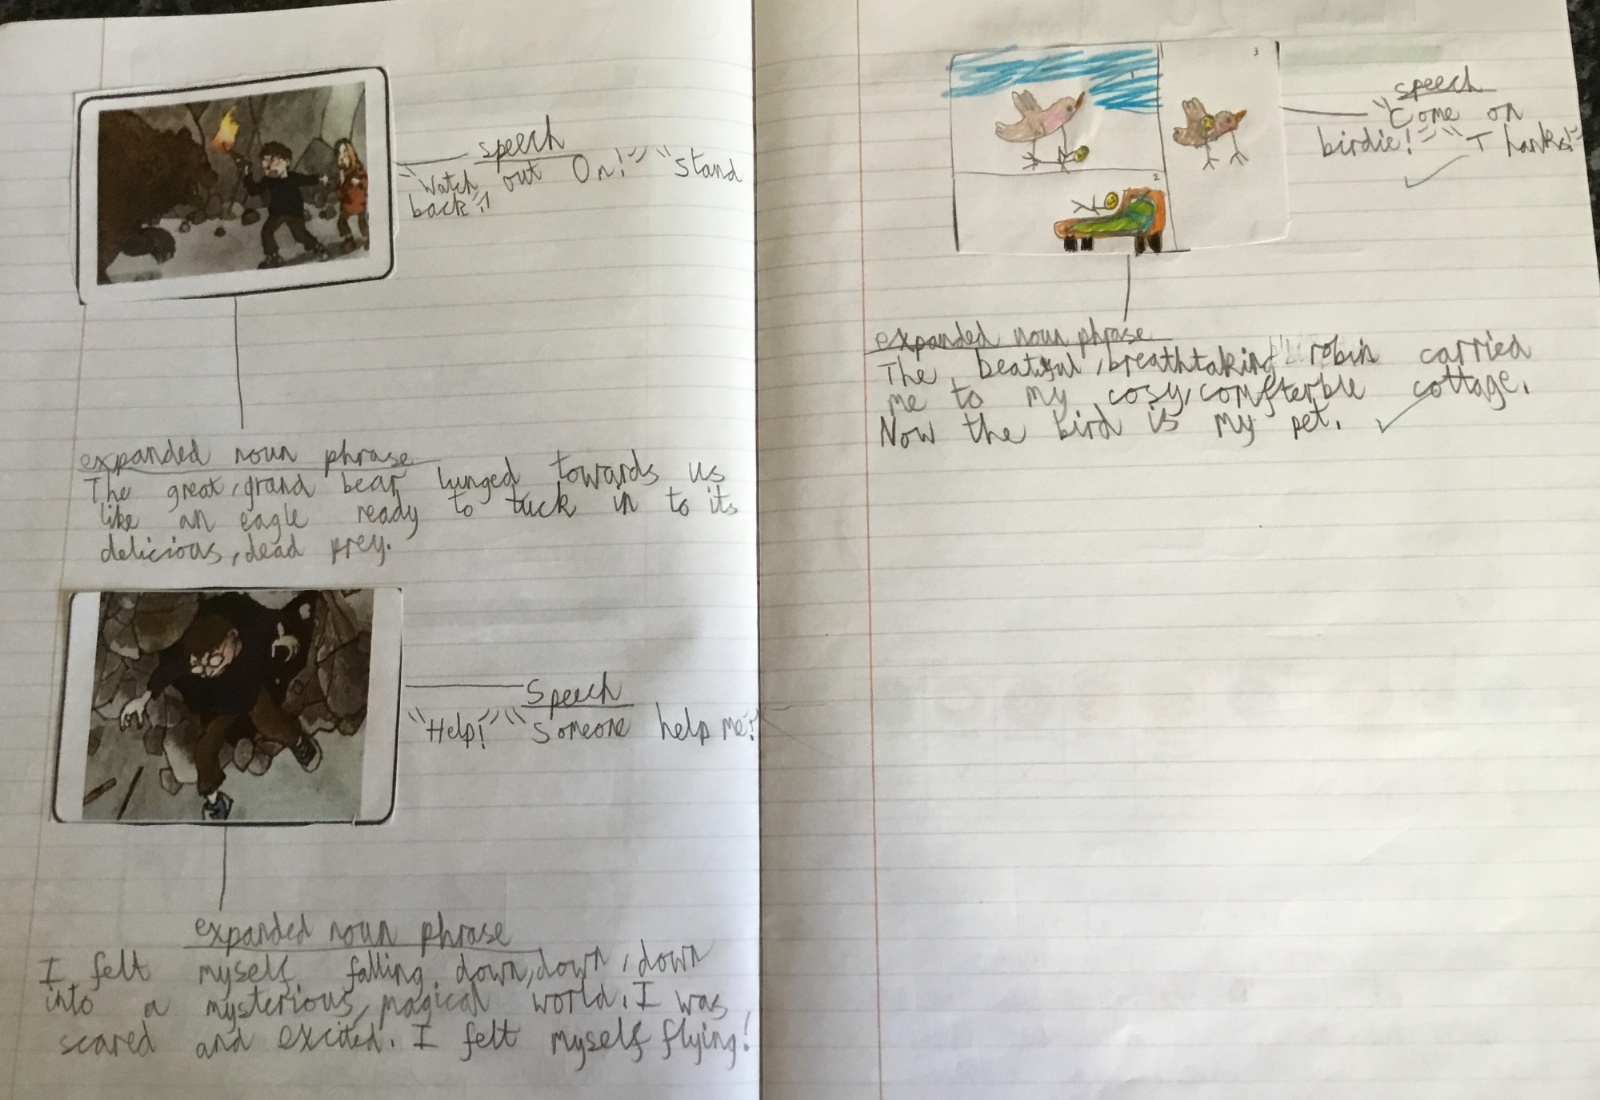 speech
"Watch out On!" "Stand
back"!
expanded noun phrase
The great, grand bear lunged towards us
like an eagle ready to tuck in to its
delicious, dead prey.
Speech
"Help!" "Someone help me!"
expanded noun phrase
I felt myself falling down, down, down
into a mysterious, magical world. I was
scared and excited. I felt myself flying!
1
3
2
speech
"Come on
birdie!" "Thanks!"
expanded noun phrase
The beatiful, breathtaking robin carried
me to my cosy, comfterble cottage.
Now the bird is my pet.